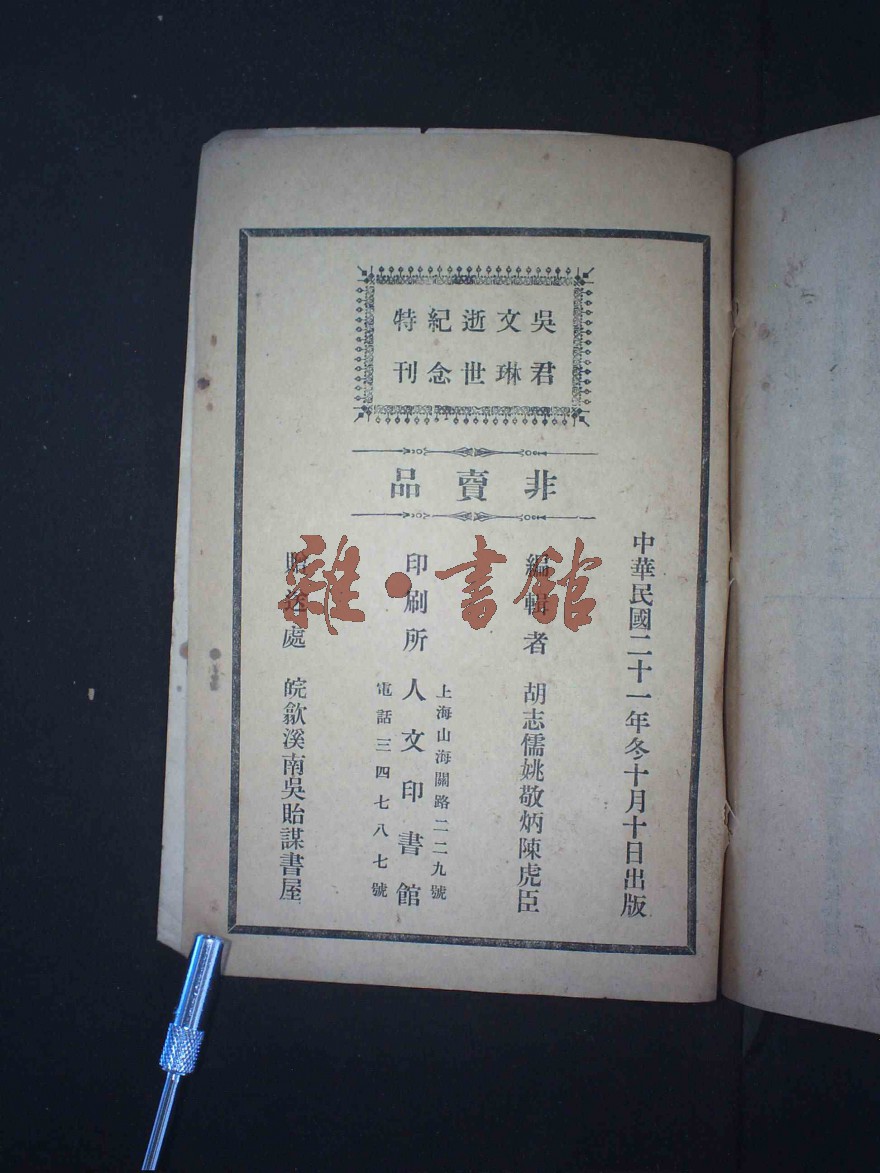 吳君
文琳
逝世
紀念
特刊
非賣品
中華民國二十一年冬十月十日出版
編輯者 胡志儒姚敬炳陳虎臣
印刷所 人文印書館
上海山海關路二二九號
電話三四七八七號
贈送處 皖歙溪南吳貽謀書屋
雜·書館